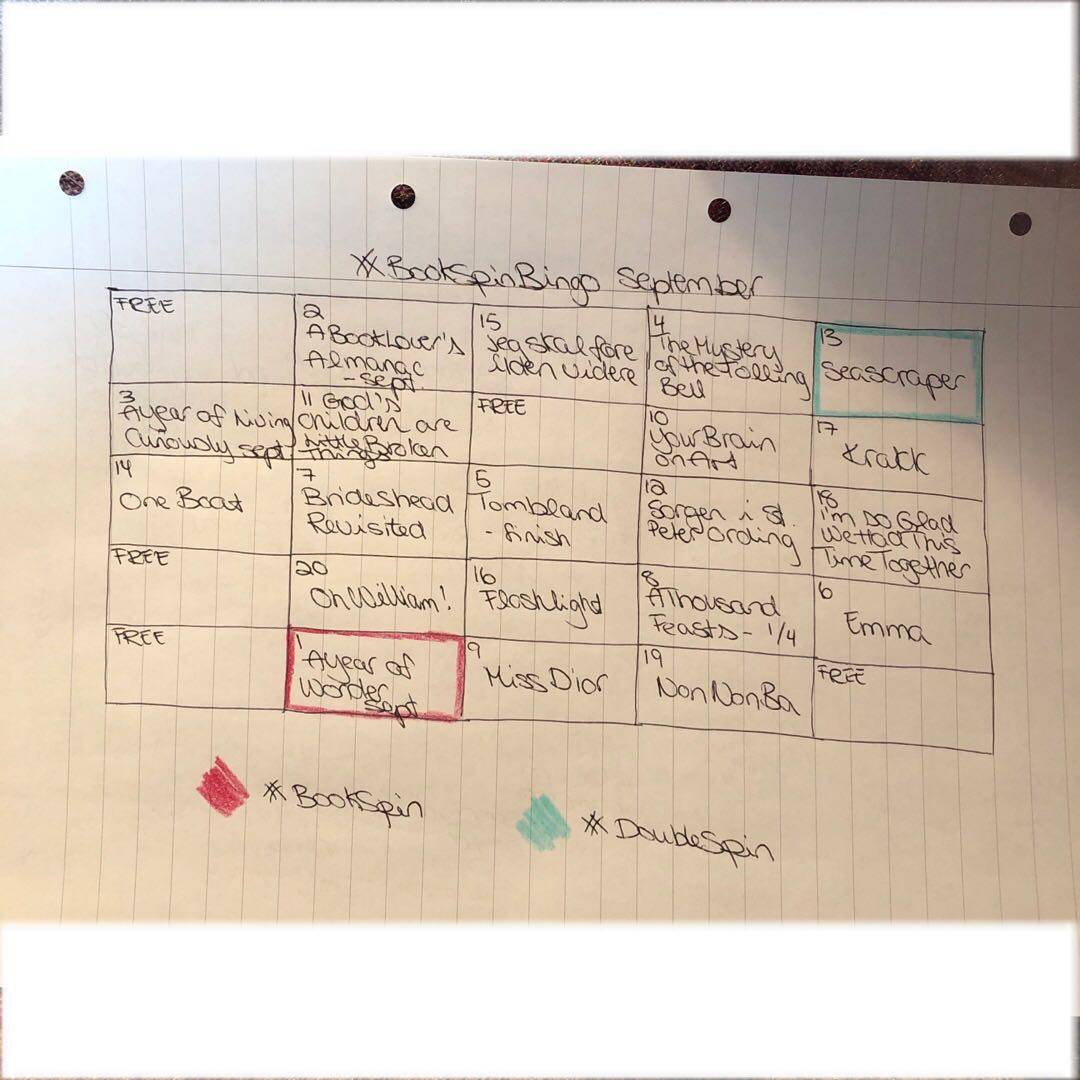 #BookSpinBingo September
FREE
2
A BookLover's
Almanac
- sept.
15
Jeg skal føre
liden videre
4
The Mystery
of the Tolling
Bell
13
Seascraper
3
A year of Living
Curiously sept
11 God's
Children are
Little Broken
Things
FREE
10
Your Brain
on Art
17
Krakk
14
One Boat
7
Brideshead
Revisited
5
Tombland
- finish
12
Sorgen i St.
Peter Ording
18
I'm So Glad
We Had This
Time Together
FREE
20
Oh William!
16
Flashlight
8
A Thousand
Feasts - 1/4
6
Emma
FREE
1
A year of
Wonder
sept
9
Miss Dior
19
NonNonBa
FREE
#BookSpin
#DoubleSpin